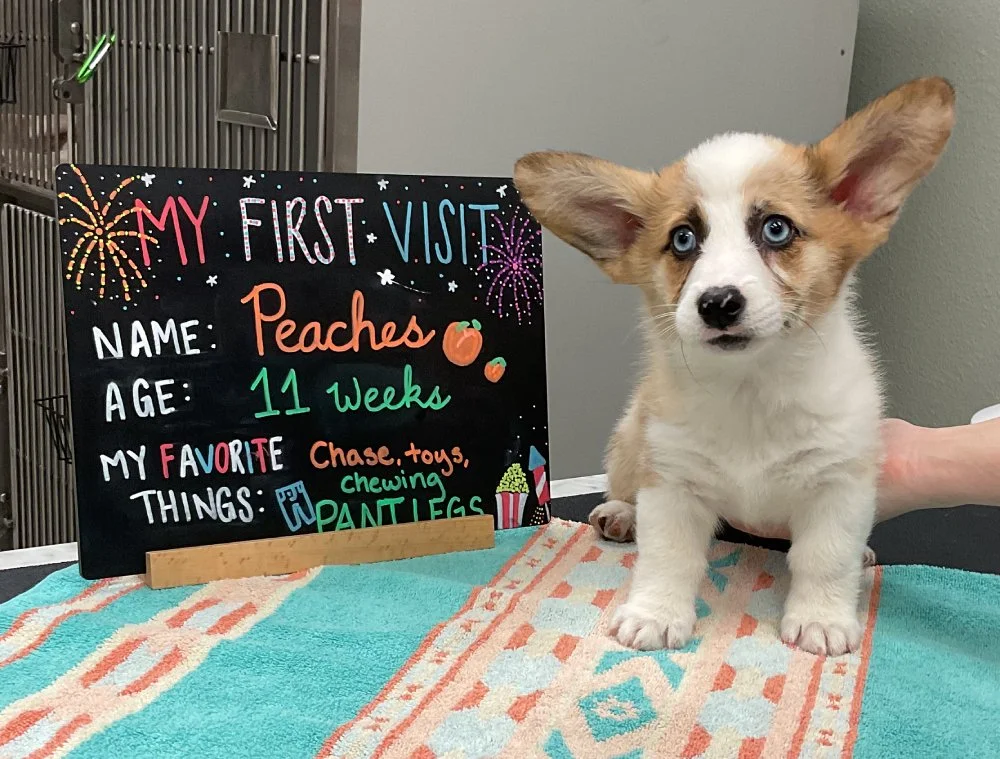 MY FIRST VISIT
NAME: Peaches
AGE: 11 weeks
MY FAVORITE THINGS: Chase, toys,
chewing
PANT LEGS